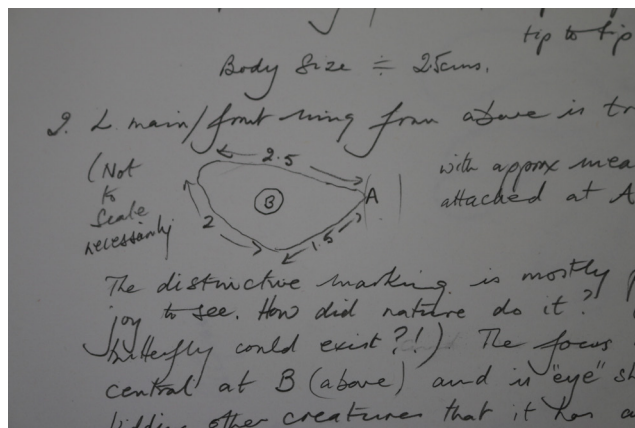 tip to tip
Body Size ≑ 25cms.
2. L. main/front wing from above is tr
(Not
to
Scale
necessarily
2.5
B
A
2
1.5
with approx mea
attached at A
The distinctive marking is mostly
joy to see. How did nature do it?
butterfly could exist?!) The focus
central at B (above) and is "eye" sh
other creatures that it has a